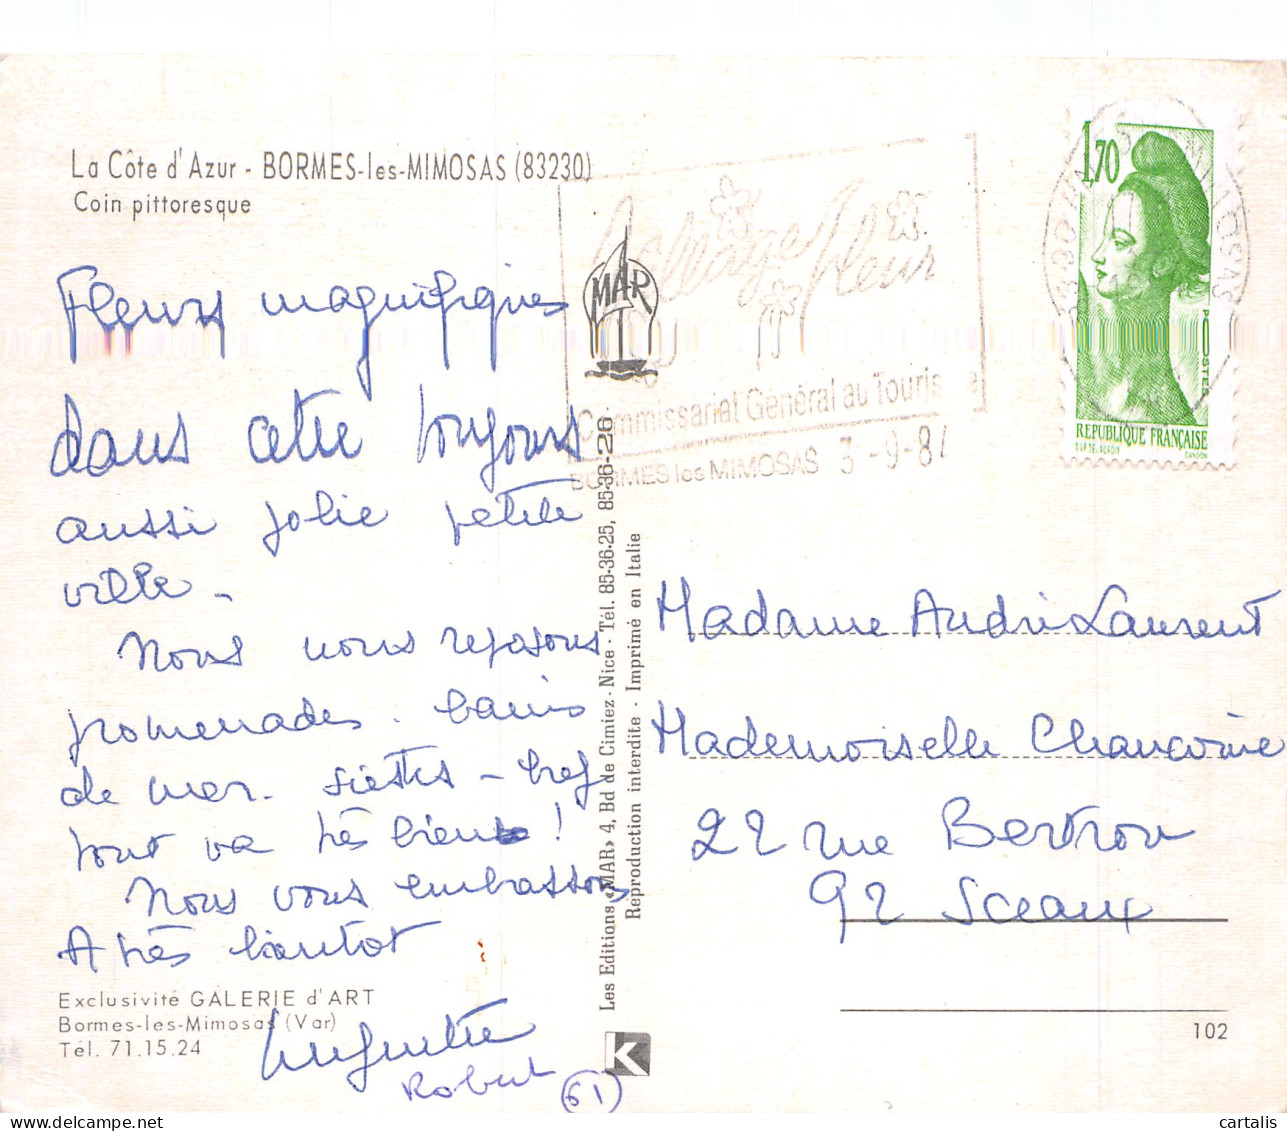 La Côte d'Azur - BORMES-les-MIMOSAS (83230)
Coin pittoresque
Fleurs magnifiques
dans cette toujours
aussi jolie petite
ville -
Nous nous reposons
promenades. bains
de mer. siestes - bref
tout va très bien !
Nous vous embrassons
A très bientot
Huguette
Robert
61
Exclusivité GALERIE d'ART
Bormes-les-Mimosas (Var)
Tél. 71.15.24
MAR
Les Editions «MAR» 4, Bd de Cimiez - Nice - Tél. 85-36-25, 85-36-26
Reproduction interdite - Imprimé en Italie
K
Village Fleuri
Commissariat Général au Tourisme
BORMES les MIMOSAS 3 -9-84
1,70
POSTES
REPUBLIQUE FRANÇAISE
D'AP. DELACROIX GANDON
Madame André Laurent
Mademoiselle
22 rue Bertron
92 Sceaux
102
cartalis